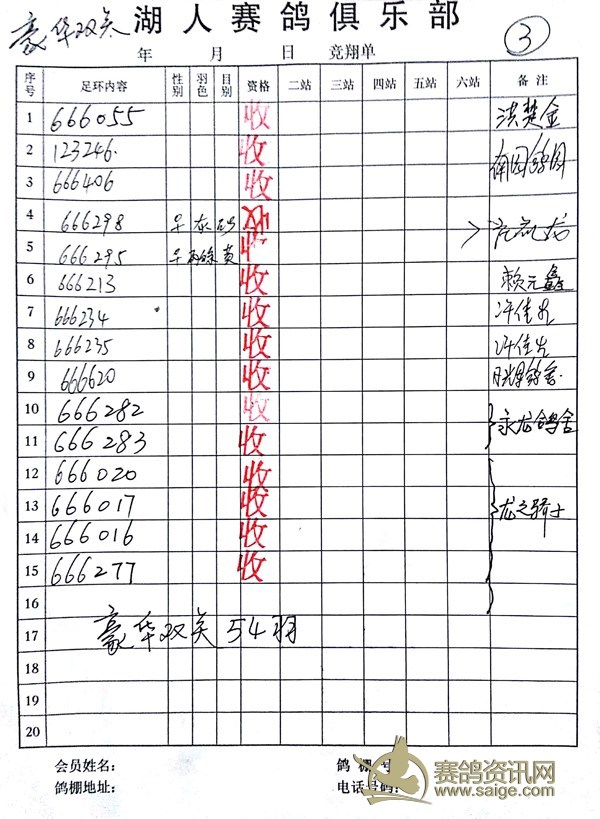 豪华双关 湖人赛鸽俱乐部 ③
年 月 日 竞翔单
序号 足环内容 性别 羽色 目别 资格 二站 三站 四站 五站 六站 备注
1 666055 收 洪楚金
2 123246. 收
3 666406 收
4 666298 早 灰 砂 收
5 666295 早 黄 收
6 666213 收 赖元鑫
7 666234 收 许佳光
8 666235 收 许佳光
9 666620 收 月光鸽舍.
10 666282 收
11 666283 收 永龙鸽舍
12 666020 收
13 666017 收 龙之骑士
14 666016 收
15 666277 收
16
17 豪华双关 54羽
18
19
20
会员姓名： 鸽棚号：
鸽棚地址： 电话号码：
赛鸽资讯网
www.saige.com